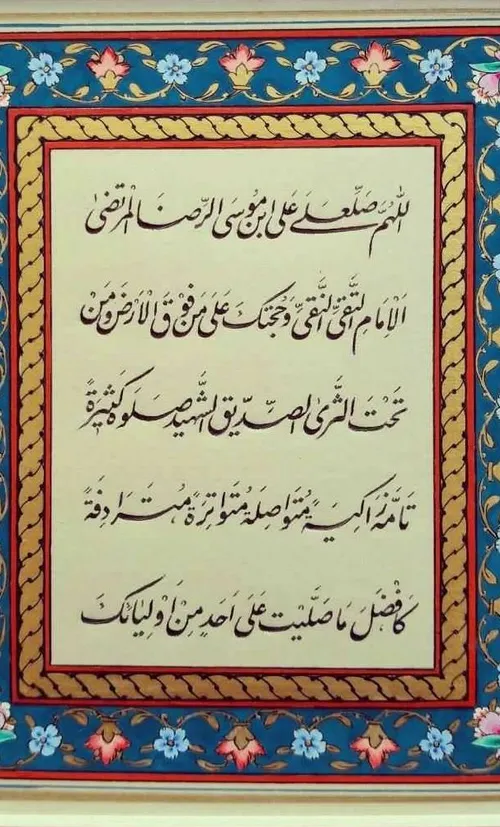 اَللّٰهُمَّ صَلِّ عَلٰى عَلَى ابْنِ مُوسَى الرِّضَا الْمُرْتَضٰى
اَلْاِمَامِ التَّقِىِّ النَّقِىِّ وَحُجَّتِكَ عَلٰى مَنْ فَوْقَ الْاَرْضِ وَمَنْ
تَحْتَ الثَّرىٰ الصِّدّيقِ الشَّهيدِ صَلٰوةً كَثيرَةً
تَامَّةً زَاكِيَةً مُتَوَاصِلَةً مُتَوَاتِرَةً مُتَرَادِفَةً
كَاَفْضَلِ مَا صَلَّيْتَ عَلٰى اَحَدٍ مِنْ اَوْلِيَائِكَ